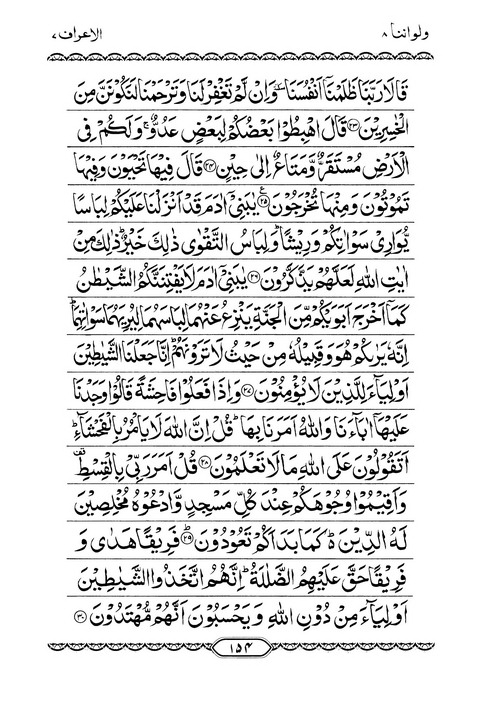 ولواننا ۸ الاعراف ۷
قَالَا رَبَّنَا ظَلَمْنَاۤ اَنْفُسَنَا ٚ وَاِنْ لَّمْ تَغْفِرْ لَنَا وَتَرْحَمْنَا لَنَكُوْنَنَّ مِنَ
الْخٰسِرِيْنَ ﴿۲۳﴾ قَالَ اهْبِطُوْا بَعْضُكُمْ لِبَعْضٍ عَدُوٌّ ۚ وَلَكُمْ فِى
الْاَرْضِ مُسْتَقَرٌّ وَّمَتَاعٌ اِلٰى حِيْنٍ ﴿۲۴﴾ قَالَ فِيْهَا تَحْيَوْنَ وَفِيْهَا
تَمُوْتُوْنَ وَمِنْهَا تُخْرَجُوْنَ ﴿۲۵﴾ يٰبَنِىْۤ اٰدَمَ قَدْ اَنْزَلْنَا عَلَيْكُمْ لِبَاسًا
يُّوَارِىْ سَوْاٰتِكُمْ وَرِيْشًا ؕ وَلِبَاسُ التَّقْوٰى ذٰلِكَ خَيْرٌ ؕ ذٰلِكَ مِنْ
اٰيٰتِ اللّٰهِ لَعَلَّهُمْ يَذَّكَّرُوْنَ ﴿۲۶﴾ يٰبَنِىْۤ اٰدَمَ لَا يَفْتِنَنَّكُمُ الشَّيْطٰنُ
كَمَاۤ اَخْرَجَ اَبَوَيْكُمْ مِّنَ الْجَنَّةِ يَنْزِعُ عَنْهُمَا لِبَاسَهُمَا لِيُرِيَهُمَا سَوْاٰتِهِمَا ؕ
اِنَّهٗ يَرٰىكُمْ هُوَ وَقَبِيْلُهٗ مِنْ حَيْثُ لَا تَرَوْنَهُمْ ؕ اِنَّا جَعَلْنَا الشَّيٰطِيْنَ
اَوْلِيَآءَ لِلَّذِيْنَ لَا يُؤْمِنُوْنَ ﴿۲۷﴾ وَاِذَا فَعَلُوْا فَاحِشَةً قَالُوْا وَجَدْنَا
عَلَيْهَاۤ اٰبَآءَنَا وَاللّٰهُ اَمَرَنَا بِهَا ؕ قُلْ اِنَّ اللّٰهَ لَا يَاْمُرُ بِالْفَحْشَآءِ ؕ
اَتَقُوْلُوْنَ عَلَى اللّٰهِ مَا لَا تَعْلَمُوْنَ ﴿۲۸﴾ قُلْ اَمَرَ رَبِّىْ بِالْقِسْطِ
وَاَقِيْمُوْا وُجُوْهَكُمْ عِنْدَ كُلِّ مَسْجِدٍ وَّادْعُوْهُ مُخْلِصِيْنَ
لَهُ الدِّيْنَ ؕ كَمَا بَدَاَكُمْ تَعُوْدُوْنَ ﴿۲۹﴾ فَرِيْقًا هَدٰى وَ
فَرِيْقًا حَقَّ عَلَيْهِمُ الضَّلٰلَةُ ؕ اِنَّهُمُ اتَّخَذُوا الشَّيٰطِيْنَ
اَوْلِيَآءَ مِنْ دُوْنِ اللّٰهِ وَيَحْسَبُوْنَ اَنَّهُمْ مُّهْتَدُوْنَ ﴿۳۰﴾
۱۵۴